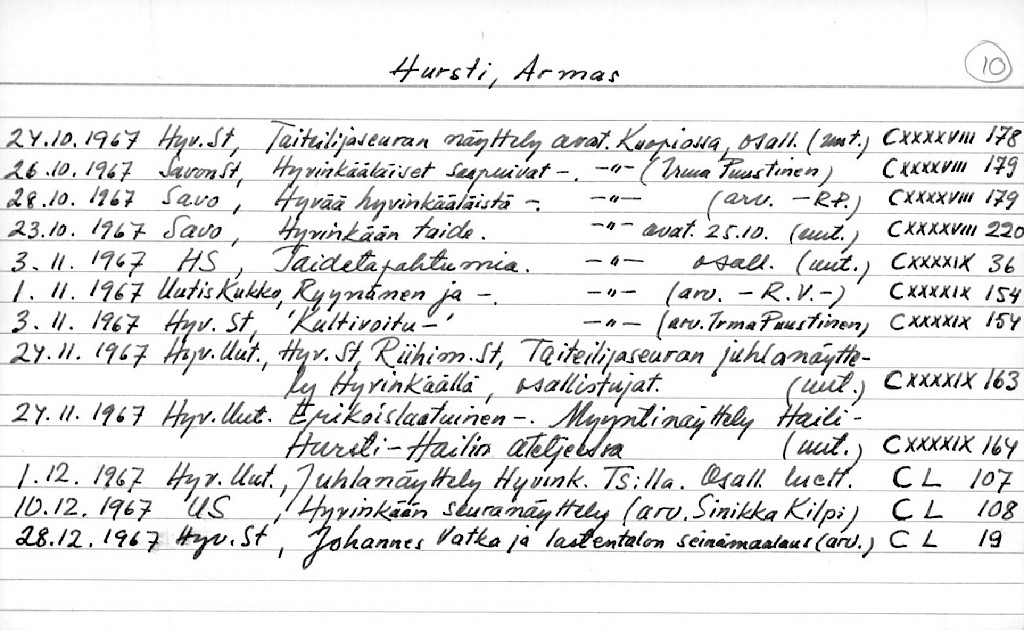 Hursti, Armas
10
24.10.1967 Hyv.St, Taiteilijaseuran näyttely avat. Kuopiossa, osall. (uut.) CXXXXVIII 178
26.10.1967 SavonSt, Hyvinkääläiset saapuivat -. -"- (Irma Puustinen) CXXXXVIII 179
28.10.1967 Savo, Hyvää hyvinkääläistä -. -"- (arv. -R.P.) CXXXXVIII 179
23.10.1967 Savo, Hyvinkään taide. -"- avat. 25.10. (uut.) CXXXXVIII 220
3.11.1967 HS, Taidetapahtumia. -"- osall. (uut.) CXXXXIX 36
1.11.1967 UutisKukko, Ryynänen ja -. -"- (arv. -R.V.-) CXXXXIX 154
3.11.1967 Hyv.St, 'Kultivoitu-' -"- (arv. Irma Puustinen) CXXXXIX 154
24.11.1967 Hyv.Uut., Hyv.St, Riihim.St, Taiteilijaseuran juhlanäytte-
ly Hyvinkäällä, osallistujat. (uut.) CXXXXIX 163
24.11.1967 Hyv.Uut. Erikoislaatuinen -. Myyntinäyttely Haili-
Hursti-Hailin ateljeessa (uut.) CXXXXIX 164
1.12.1967 Hyv.Uut., Juhlanäyttely Hyvink. TS:lla. Osall. luett. CL 107
10.12.1967 US, Hyvinkään seuranäyttely (arv. Sinikka Kilpi) CL 108
28.12.1967 Hyv.St, Johannes Vatka ja lastentalon seinämaalaus (arv.) CL 19